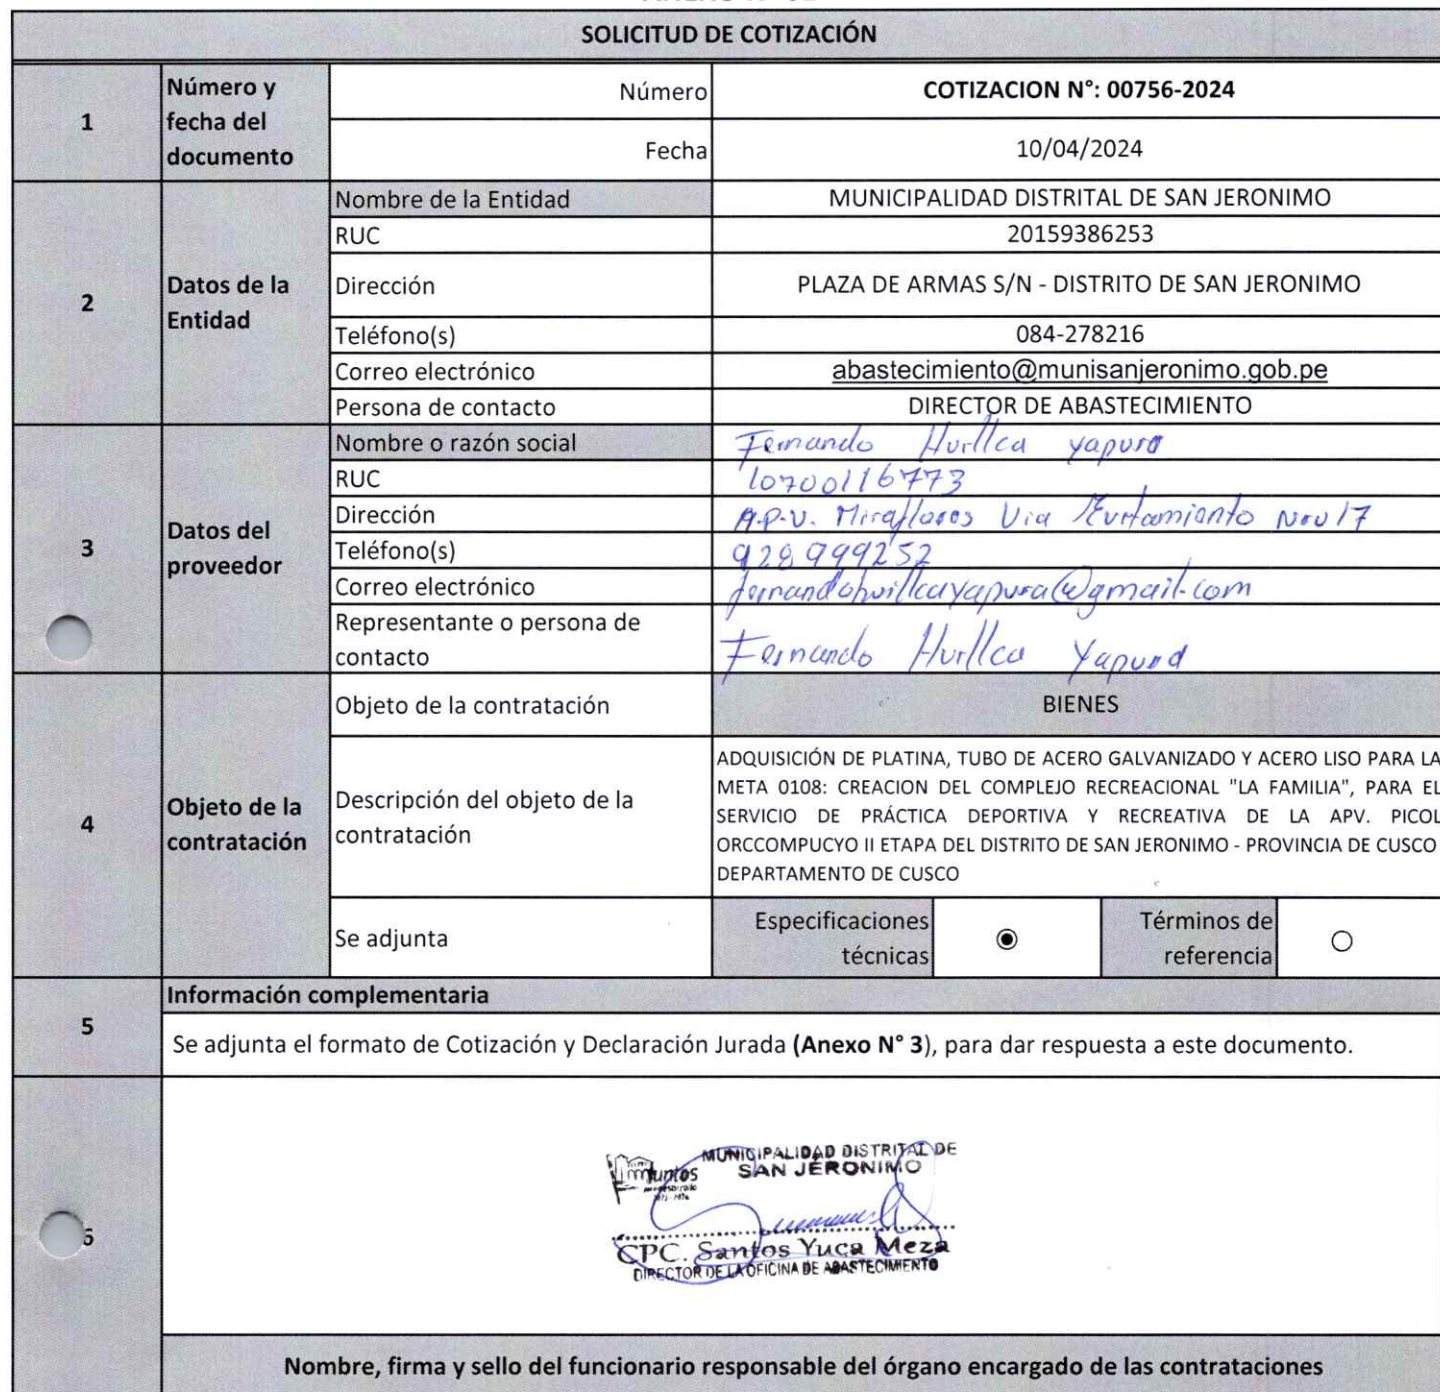 SOLICITUD DE COTIZACIÓN
1
Número y fecha del documento
Número
COTIZACION N°: 00756-2024
Fecha
10/04/2024
2
Datos de la Entidad
Nombre de la Entidad
MUNICIPALIDAD DISTRITAL DE SAN JERONIMO
RUC
20159386253
Dirección
PLAZA DE ARMAS S/N - DISTRITO DE SAN JERONIMO
Teléfono(s)
084-278216
Correo electrónico
abastecimiento@munisanjeronimo.gob.pe
Persona de contacto
DIRECTOR DE ABASTECIMIENTO
3
Datos del proveedor
Nombre o razón social
Fernando Huillca Yapura
RUC
10700116773
Dirección
A.P.V. Miraflores Via Evitamiento Nro 17
Teléfono(s)
928999252
Correo electrónico
fernandohuillcayapura@gmail.com
Representante o persona de contacto
Fernando Huillca Yapura
4
Objeto de la contratación
Objeto de la contratación
BIENES
Descripción del objeto de la contratación
ADQUISICIÓN DE PLATINA, TUBO DE ACERO GALVANIZADO Y ACERO LISO PARA LA
META 0108: CREACION DEL COMPLEJO RECREACIONAL "LA FAMILIA", PARA EL
SERVICIO DE PRÁCTICA DEPORTIVA Y RECREATIVA DE LA APV. PICOL
ORCCOMPUCYO II ETAPA DEL DISTRITO DE SAN JERONIMO - PROVINCIA DE CUSCO
DEPARTAMENTO DE CUSCO
Se adjunta
Especificaciones técnicas
Términos de referencia
5
Información complementaria
Se adjunta el formato de Cotización y Declaración Jurada (Anexo N° 3), para dar respuesta a este documento.
6
Juntos
MUNICIPALIDAD DISTRITAL DE
SAN JERONIMO
CPC. Santos Yuca Meza
DIRECTOR DE LA OFICINA DE ABASTECIMIENTO
Nombre, firma y sello del funcionario responsable del órgano encargado de las contrataciones